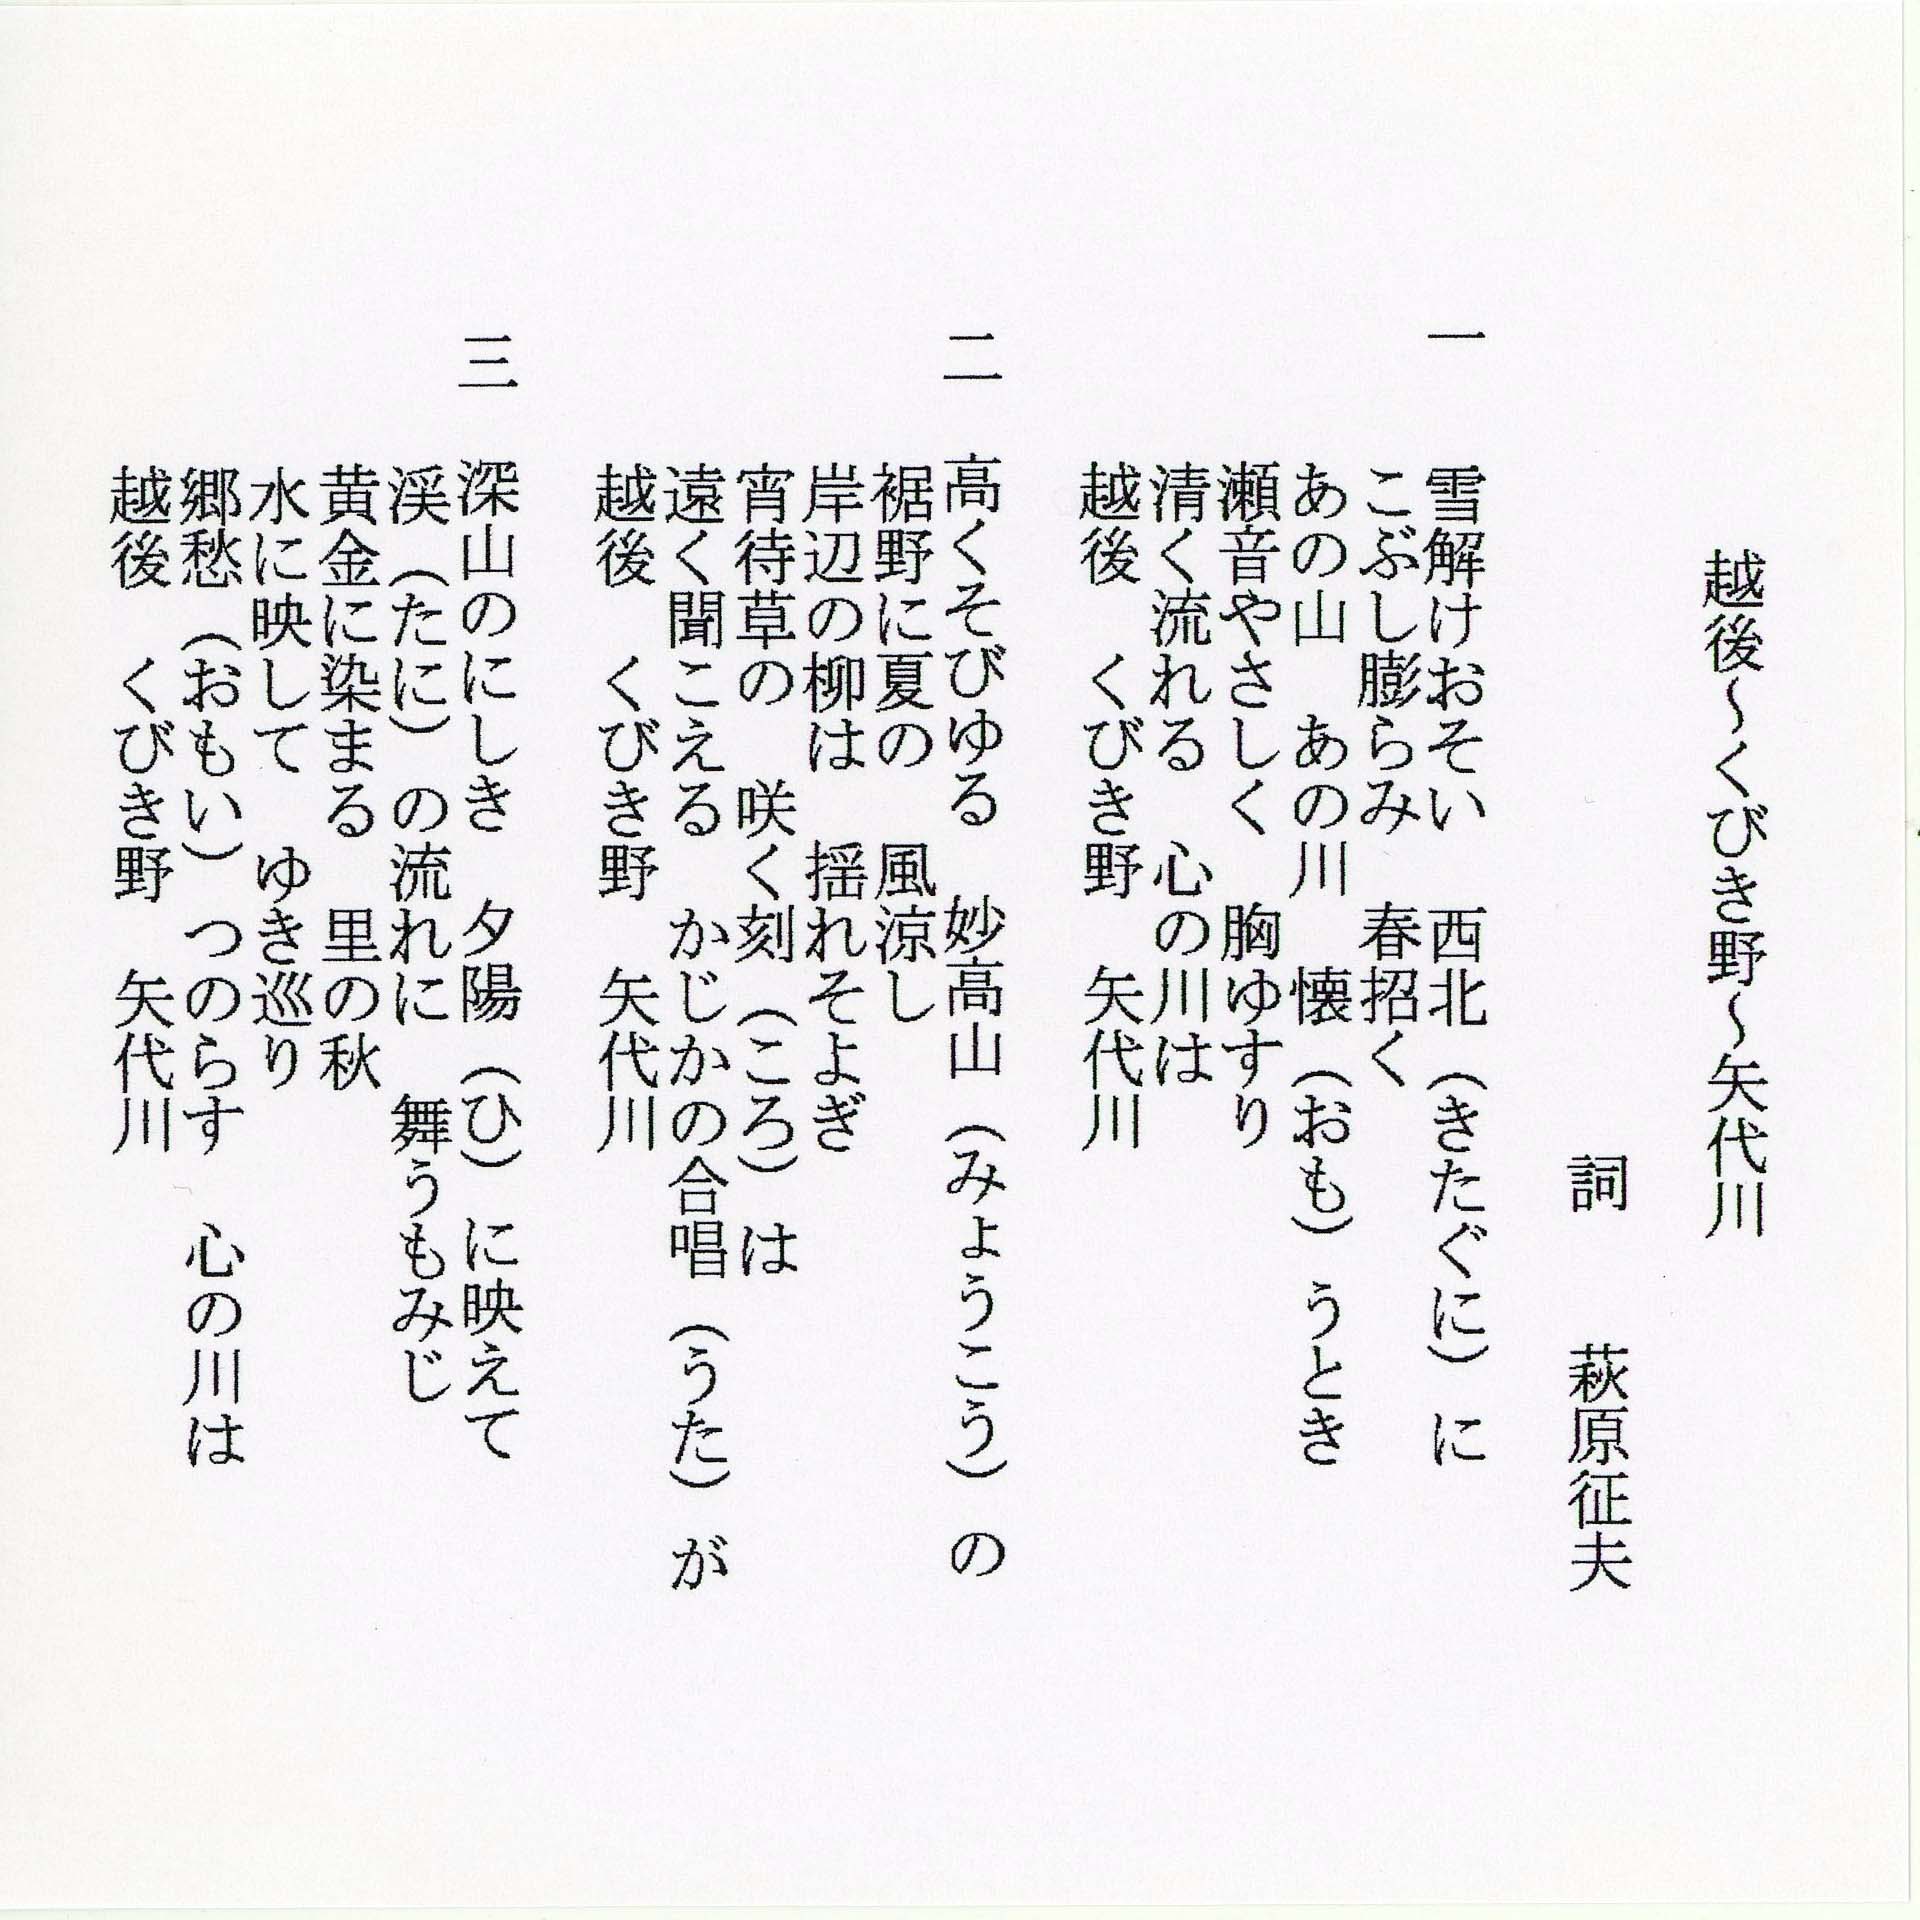 越後～くびき野～矢代川
詞　　萩原征夫
一　雪解けおそい　西北（きたぐに）に
こぶし膨らみ　春招く
あの山　あの川　懐（おも）うとき
瀬音やさしく　胸ゆすり
清く流れる　心の川は
越後　くびき野　矢代川
二　高くそびゆる　妙高山（みょうこう）の
裾野に夏の　風涼し
岸辺の柳は　揺れそよぎ
宵待草の　咲く刻（ころ）は
遠く聞こえる　かじかの合唱（うた）が
越後　くびき野　矢代川
三　深山のにしき　夕陽（ひ）に映えて
渓（たに）の流れに　舞うもみじ
黄金に染まる　里の秋
水に映して　ゆき巡り
郷愁（おもい）つのらす　心の川は
越後　くびき野　矢代川